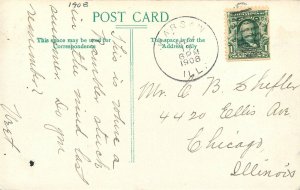 1908
POST CARD
This space may be used for
Correspondence
This space is for the
Address only
1908
ILL.
This is where a
scull stuck
in the mud last
summer Do you
remember
Mr. C B. Shefler
4420 Ellis Ave
Chicago
Illinois